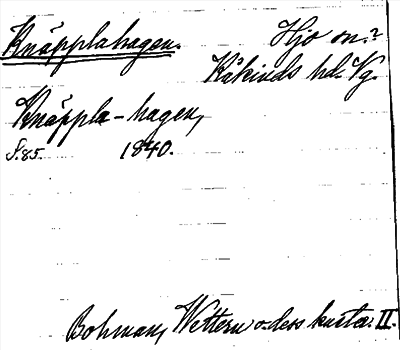 Knäpplahagen.
Hjo sn.?
Kåkinds hd. Vg.
Knäppla-hagen,
S.85. 1840.
Bohman, Wettern o. dess kuster. II.